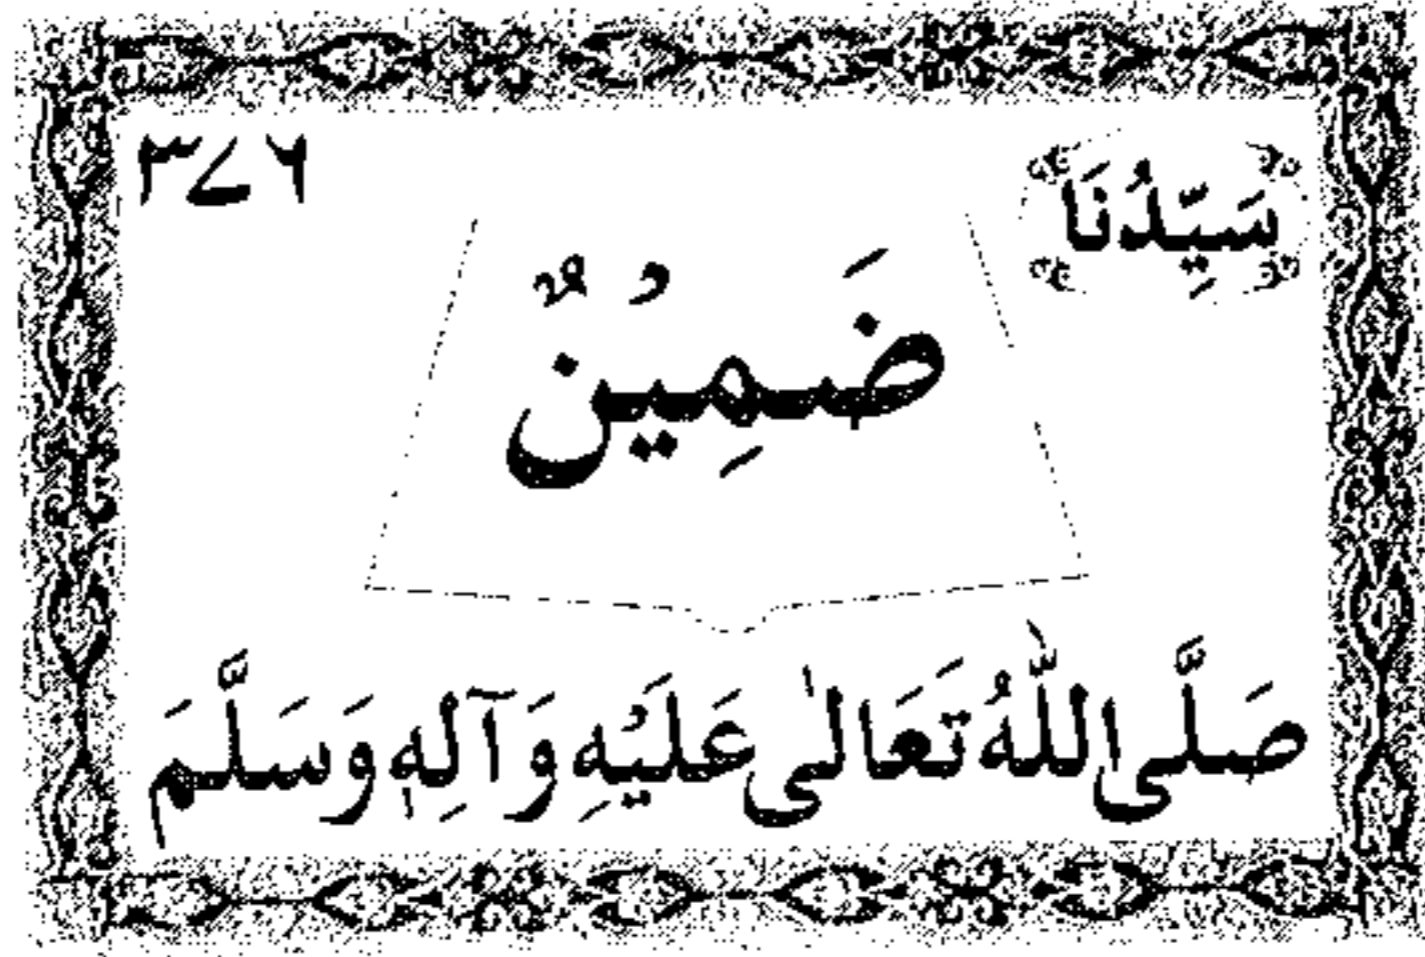 سَيِّدُنَا
۳۷۶
ضَمِيْنٌ
صَلَّى اللّٰهُ تَعَالٰى عَلَيْهِ وَآلِهٖ وَسَلَّمَ